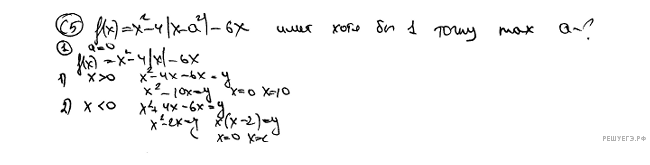 C5 f(x)=x²-4|x-a²|-6x имеет хотя бы 1 точку max a-?
① a=0
f(x)=x²-4|x|-6x
1) x>0 x²-4x-6x=y
x²-10x=y x=0 x=10
2) x<0 x²+4x-6x=y
x²-2x=y x(x-2)=y
x=0 x=2
РЕШУЕГЭ.РФ